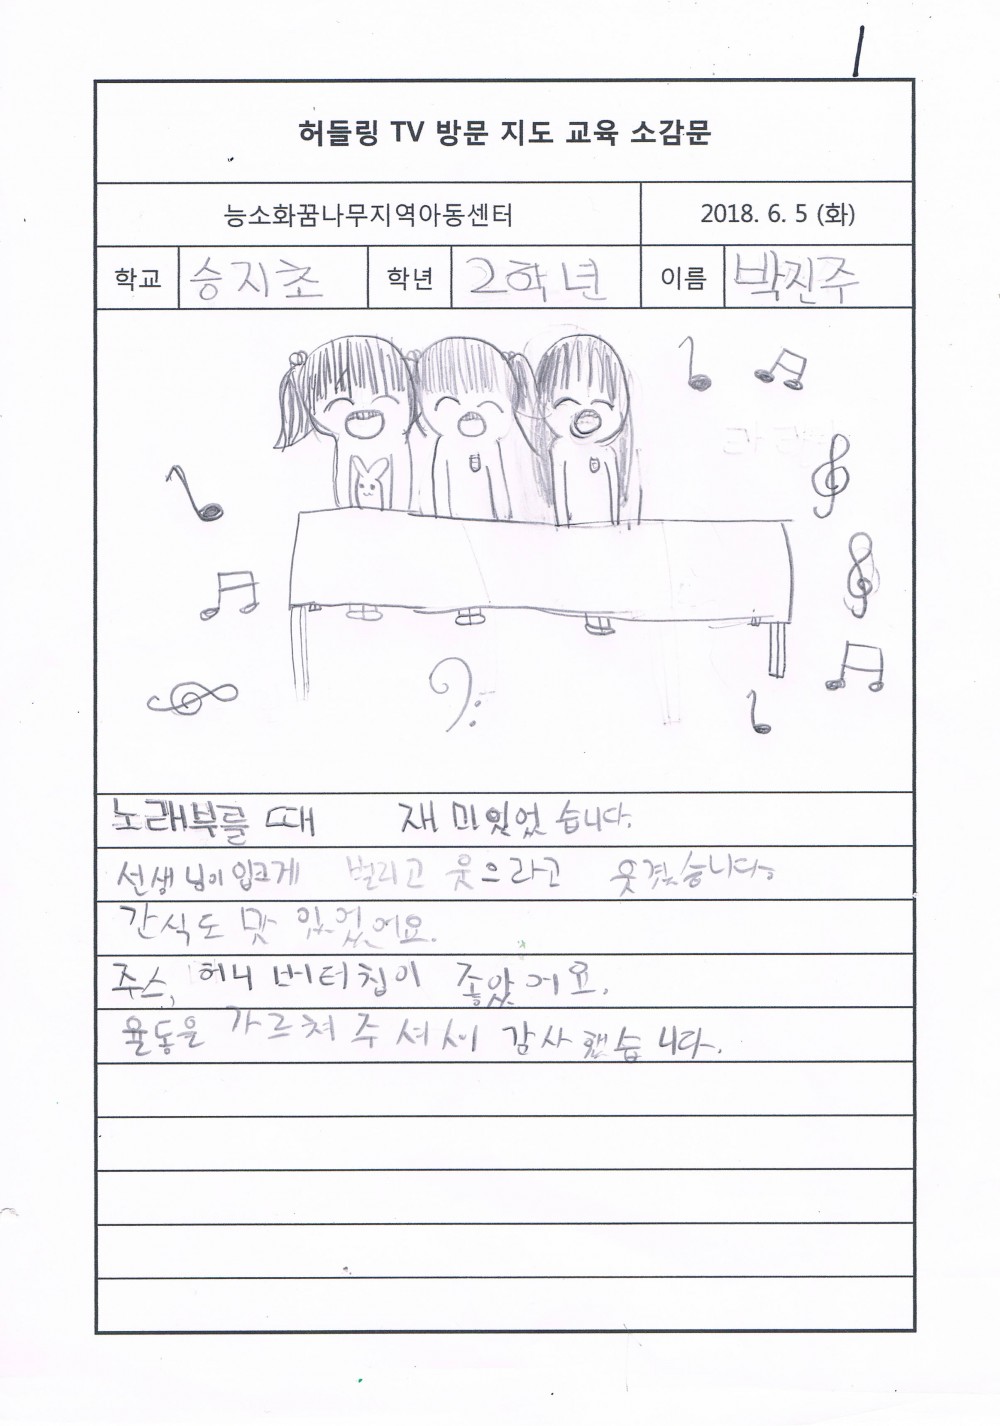 1
허들링 TV 방문 지도 교육 소감문
능소화꿈나무지역아동센터 2018. 6. 5 (화)
학교 승지초 학년 2학년 이름 박진주
노래부를 때 재미있었습니다.
선생님이 입크게 벌리고 웃으라고 웃겼습니다.
간식도 맛있었어요.
주스, 허니버터칩이 좋았어요.
율동을 가르쳐주셔서 감사했습니다.